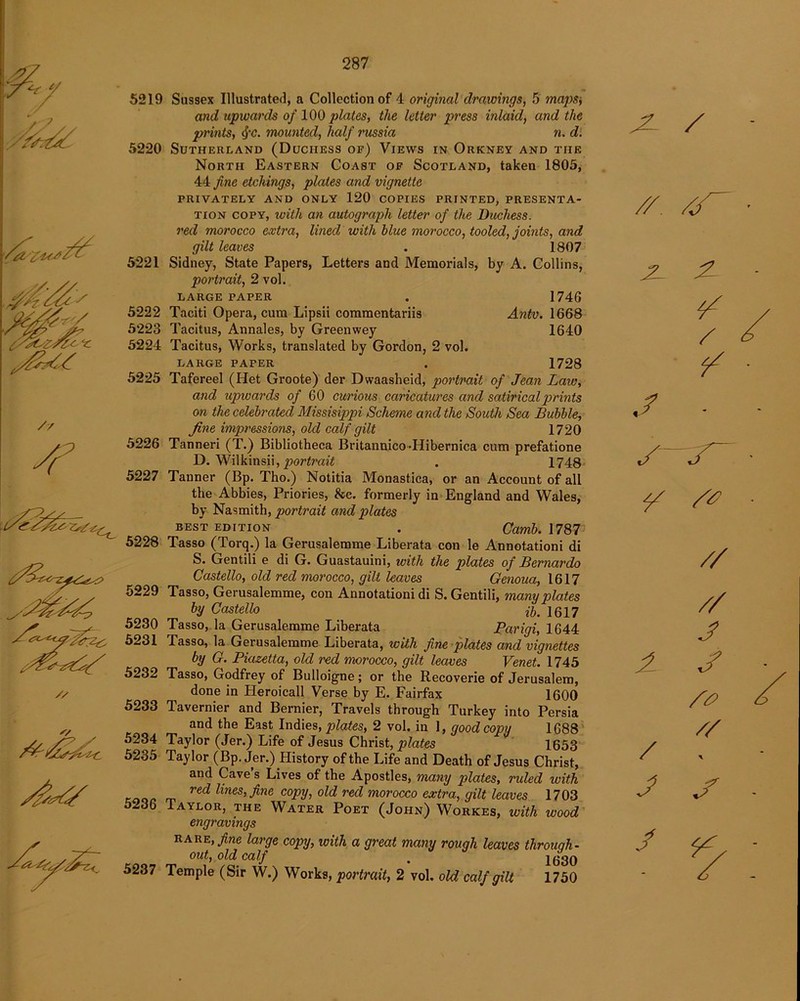 287
5219 Sussex Illustrated, a Collection of 4 original drawings, 5 maps,
and upwards of 100 plates, the letter press inlaid, and the
prints, &c. mounted, half russia n. d.
5220 Sutherland (Duchess of) Views in Orkney and the
North Eastern Coast of Scotland, taken 1805,
44 fine etchings, plates and vignette
PRIVATELY AND ONLY 120 COPIES PRINTED, PRESENTA-
TION COPY, with an autograph letter of the Duchess.
red morocco extra, lined with blue morocco, tooled, joints, and
gilt leaves . 1807
5221 Sidney, State Papers, Letters and Memorials, by A. Collins,
portrait, 2 vol.
LARGE PAPER . 1746
5222 Taciti Opera, cum Lipsii commentariis Antv. 1668
5223 Tacitus, Annales, by Greenwey 1640
5224 Tacitus, Works, translated by Gordon, 2 vol.
LARGE PAPER . 1728
5225 Tafereel (Het Groote) der Dwaasheid, portrait of Jean Law,
and upwards of 60 curious caricatures and satirical prints
on the celebrated Missisippi Scheme and the South Sea Bubble,
fine impressions, old calf gilt 1720
5226 Tanneri (T.) Bibliotheca Britannico-Hibernica cum prefatione
D. Wilkinsii, portrait . 1748
5227 Tanner (Bp. Tho.) Notitia Monastica, or an Account of all
the Abbies, Priories, &c. formerly in England and Wales,
by Nasmith, portrait and plates
BEST EDITION . Camb. 1787
5228 Tasso (Torq.) la Gerusalemme Liberata con le Annotationi di
S. Gentili e di G. Guastauini, with the plates of Bernardo
Castello, old red morocco, gilt leaves Genoua, 1617
5229 Tasso, Gerusalemme, con Annotationi di S. Gentili, many plates
by Castello ib. 1617
5230 Tasso, la Gerusalemme Liberata Parigi, 1644
5231 Tasso, la Gerusalemme Liberata, with fine plates and vignettes
by G. Piazetta, old red morocco, gilt leaves Venet. 1745
5232 Tasso, Godfrey of Bulloigne; or the Recoverie of Jerusalem,
done in Heroicall Verse by E. Fairfax 1600
5233 Tavernier and Bernier, Travels through Turkey into Persia
and the East Indies, plates, 2 vol. in 1, good copy 1688
5234 Taylor (Jer.) Life of Jesus Christ, plates 1653
5235 Taylor (Bp. Jer.) History of the Life and Death of Jesus Christ,
and Cave's Lives of the Apostles, many plates, ruled with
red lines, fine copy, old red morocco extra, gilt leaves 1703
5236 Taylor, the Water Poet (John) Workes, with wood
engravings
RARE, fine large copy, with a great many rough leaves through-
out, old calf . 1630
5237 Temple (Sir W.) Works, portrait, 2 vol. old calf gilt 1750